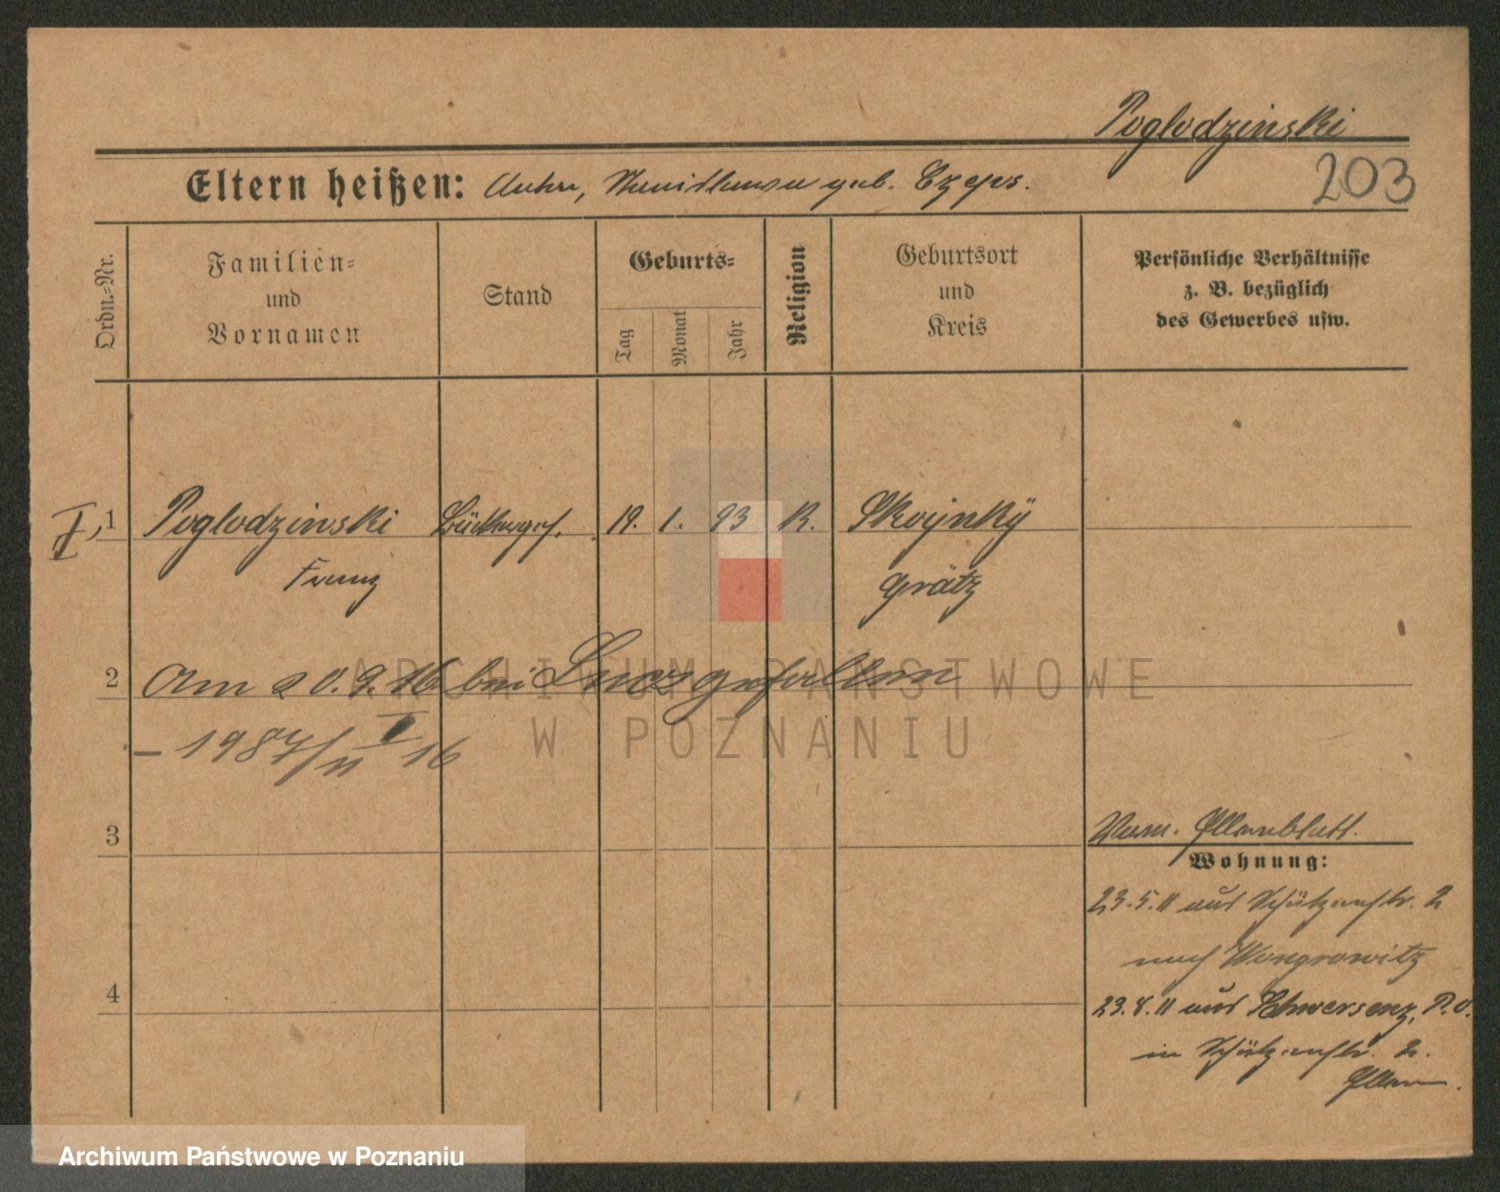 Poglodzinski
203
Eltern heißen: Anton, Stanislawa geb. Czeps.
Ordn.-Nr.
Familien-
und
Vornamen
Stand
Geburts-
Tag
Monat
Jahr
Religion
Geburtsort
und
Kreis
Persönliche Verhältnisse
z. B. bezüglich
des Gewerbes usw.
1 Poglodzinski Bäckerges. 19. 1. 93 K.
Franz Grätz
2 Am 20.9.16 bei gefallen
ARCHIWUM PAŃSTWOWE
W POZNANIU
3
Elternblatt.
Wohnung:
23.5.11 aus Schützenstr. 2
nach Wongrowitz
4
23.8.11 aus Schwersenz, P.O.
in Schützenstr. 2.
Eltern.
Archiwum Państwowe w Poznaniu